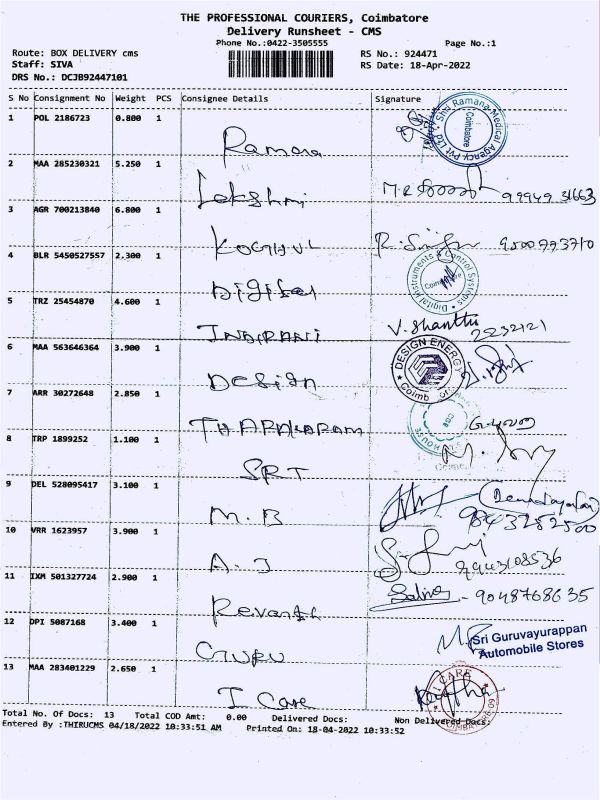 THE PROFESSIONAL COURIERS, Coimbatore
Delivery Runsheet - CMS
Phone No.:0422-3505555 Page No.:1
Route: BOX DELIVERY cms RS No.: 924471
Staff: SIVA RS Date: 18-Apr-2022
DRS No.: DCJB92447101
S No Consignment No Weight PCS Consignee Details Signature
1 POL 2186723 0.800 1
Ramana Shri Ramana Medical Agency Pvt Ltd Coimbatore
2 MAA 285230321 5.250 1
Lakshmi
3 AGR 700213840 6.800 1
4 BLR 5450527557 2.300 1
Digital Digital Instruments & Control Systems
5 TRZ 25454870 4.600 1
INDIRANI V. Shanthi 2232121
6 MAA 563646364 3.900 1
Design DESIGN ENERGY Coimb
7 ARR 30272648 2.850 1
8 TRP 1899252 1.100 1
SRT
9 DEL 528095417 3.100 1
M.B 9843252500
10 VRR 1623957 3.900 1
A.J 9943108536
11 IXM 501327724 2.900 1
Revanth 9048768635
12 DPI 5087168 3.400 1
GURU Sri Guruvayurappan
Automobile Stores
13 MAA 283401229 2.650 1
I Care I CARE
Total No. Of Docs: 13 Total COD Amt: 0.00 Delivered Docs: Non Delivered Docs:
Entered By :THIRUCMS 04/18/2022 10:33:51 AM Printed On: 18-04-2022 10:33:52